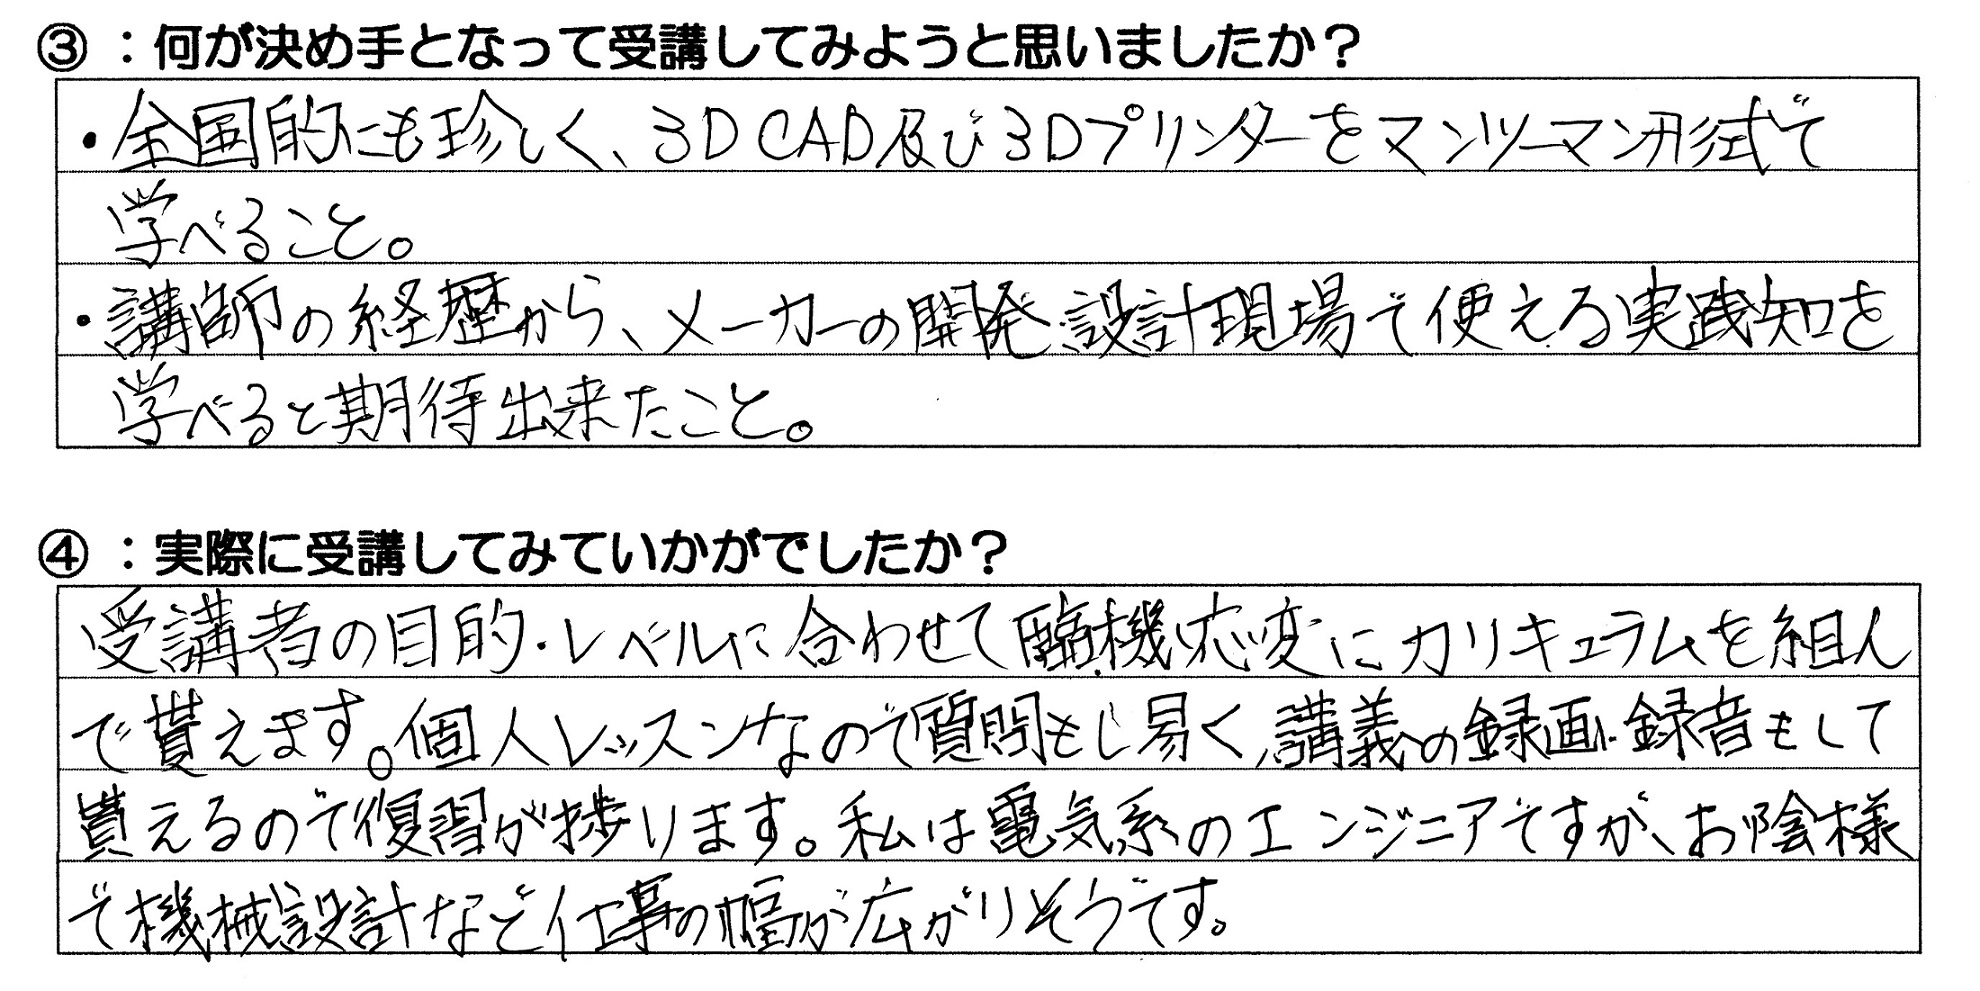 ③：何が決め手となって受講してみようと思いましたか？
・全国的にも珍しく、3D CAD及び3Dプリンターをマンツーマン形式で
学べること。
・講師の経歴から、メーカーの開発・設計現場で使える実践知を
学べると期待出来たこと。
④：実際に受講してみていかがでしたか？
受講者の目的・レベルに合わせて臨機応変にカリキュラムを組ん
で貰えます。個人レッスンなので質問もし易く、講義の録画・録音もして
貰えるので復習が捗ります。私は電気系のエンジニアですが、お陰様
で機械設計など仕事の幅が広がりそうです。